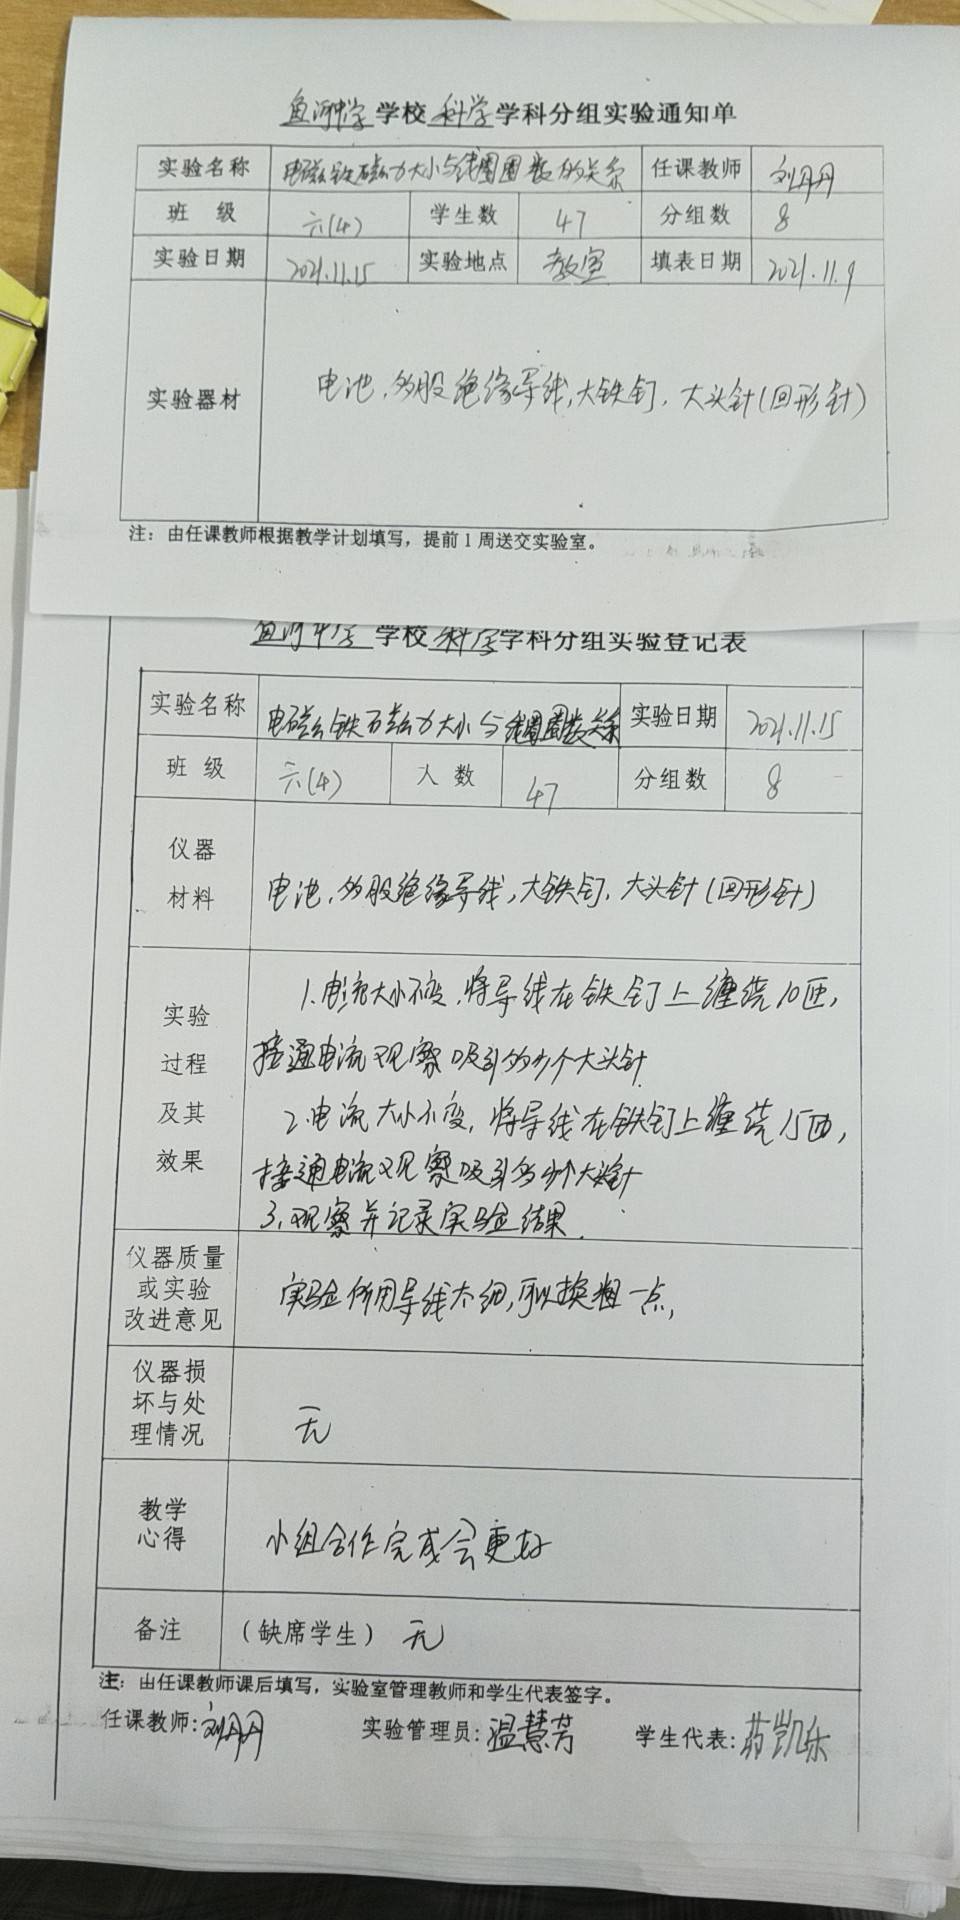 鱼河中学学校科学学科分组实验通知单
实验名称 电磁铁磁力大小与线圈圈数的关系 任课教师 刘丹丹
班 级 六(4) 学生数 47 分组数 8
实验日期 2021.11.15 实验地点 教室 填表日期 2021.11.9
实验器材 电池,多股绝缘导线,大铁钉,大头针(回形针)
注:由任课教师根据教学计划填写,提前1周送交实验室。
鱼河中学学校科学学科分组实验登记表
实验名称 电磁铁磁力大小与线圈圈数关系 实验日期 2021.11.15
班 级 六(4) 人 数 47 分组数 8
仪器
材料
电池,多股绝缘导线,大铁钉,大头针(回形针)
实验
过程
及其
效果
1.电流大小不变,将导线在铁钉上缠绕10匝,
接通电流观察吸引多少个大头针
2.电流大小不变,将导线在铁钉上缠绕15匝,
接通电流观察吸引多少个大头针
3.观察并记录实验结果.
仪器质量
或实验
改进意见
实验所用导线太细,可以换粗一点,
仪器损
坏与处
理情况
无
教学
心得
小组合作完成会更好
备注 (缺席学生) 无
注:由任课教师课后填写,实验室管理教师和学生代表签字。
任课教师:刘丹丹 实验管理员:温慧芳 学生代表:凯乐